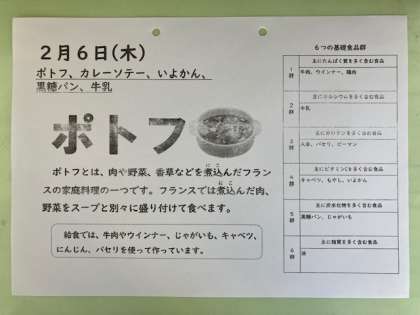 2月6日(木)
ポトフ、カレーソテー、いよかん、
黒糖パン、牛乳
ポトフ
ポトフとは、肉や野菜、香草などを煮込んだフラン
スの家庭料理の一つです。フランスでは煮込んだ肉、
野菜をスープと別々に盛り付けて食べます。
給食では、牛肉やウインナー、じゃがいも、キャベツ、
にんじん、パセリを使って作っています。
6つの基礎食品群
1群
主にたんぱく質を多く含む食品
牛肉、ウインナー、鶏肉
2群
主にカルシウムを多く含む食品
牛乳
3群
主にカロテンを多く含む食品
人参、パセリ、ピーマン
4群
主にビタミンCを多く含む食品
キャベツ、もやし、いよかん
5群
主に炭水化物を多く含む食品
黒糖パン、じゃがいも
6群
主に脂質を多く含む食品
油